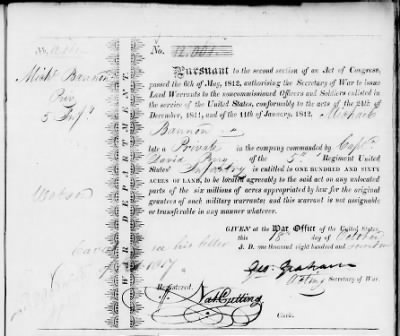 No.
No. 12,001
Mich! Bannon
Priv
5 Inf'y
WAR DEPARTMENT
Pursuant to the second section of an Act of Congress,
passed the 6th of May, 1812, authorising the Secretary of War to issue
Land Warrants to the noncommissioned Officers and Soldiers enlisted in
the service of the United States, conformably to the acts of the 24th of
December, 1811, and the 11th of January, 1812, Michael
Bannon
late a Private in the company commanded by Capt
David Perry of the 5th Regiment United
States' Infantry is entitled to ONE HUNDRED AND SIXTY
ACRES OF LAND, to be located agreeably to the said act on any unlocated
parts of the six millions of acres appropriated by law for the original
grantees of such military warrants; and this warrant is not assignable
or transferable in any manner whatever.
GIVEN at the War Office of the United States,
this day of October
A. D. one thousand eight hundred and seventeen
his letter
1817
Geo: Graham
Acting Secretary of War.
Registered.
Nat Cutting
Clerk.